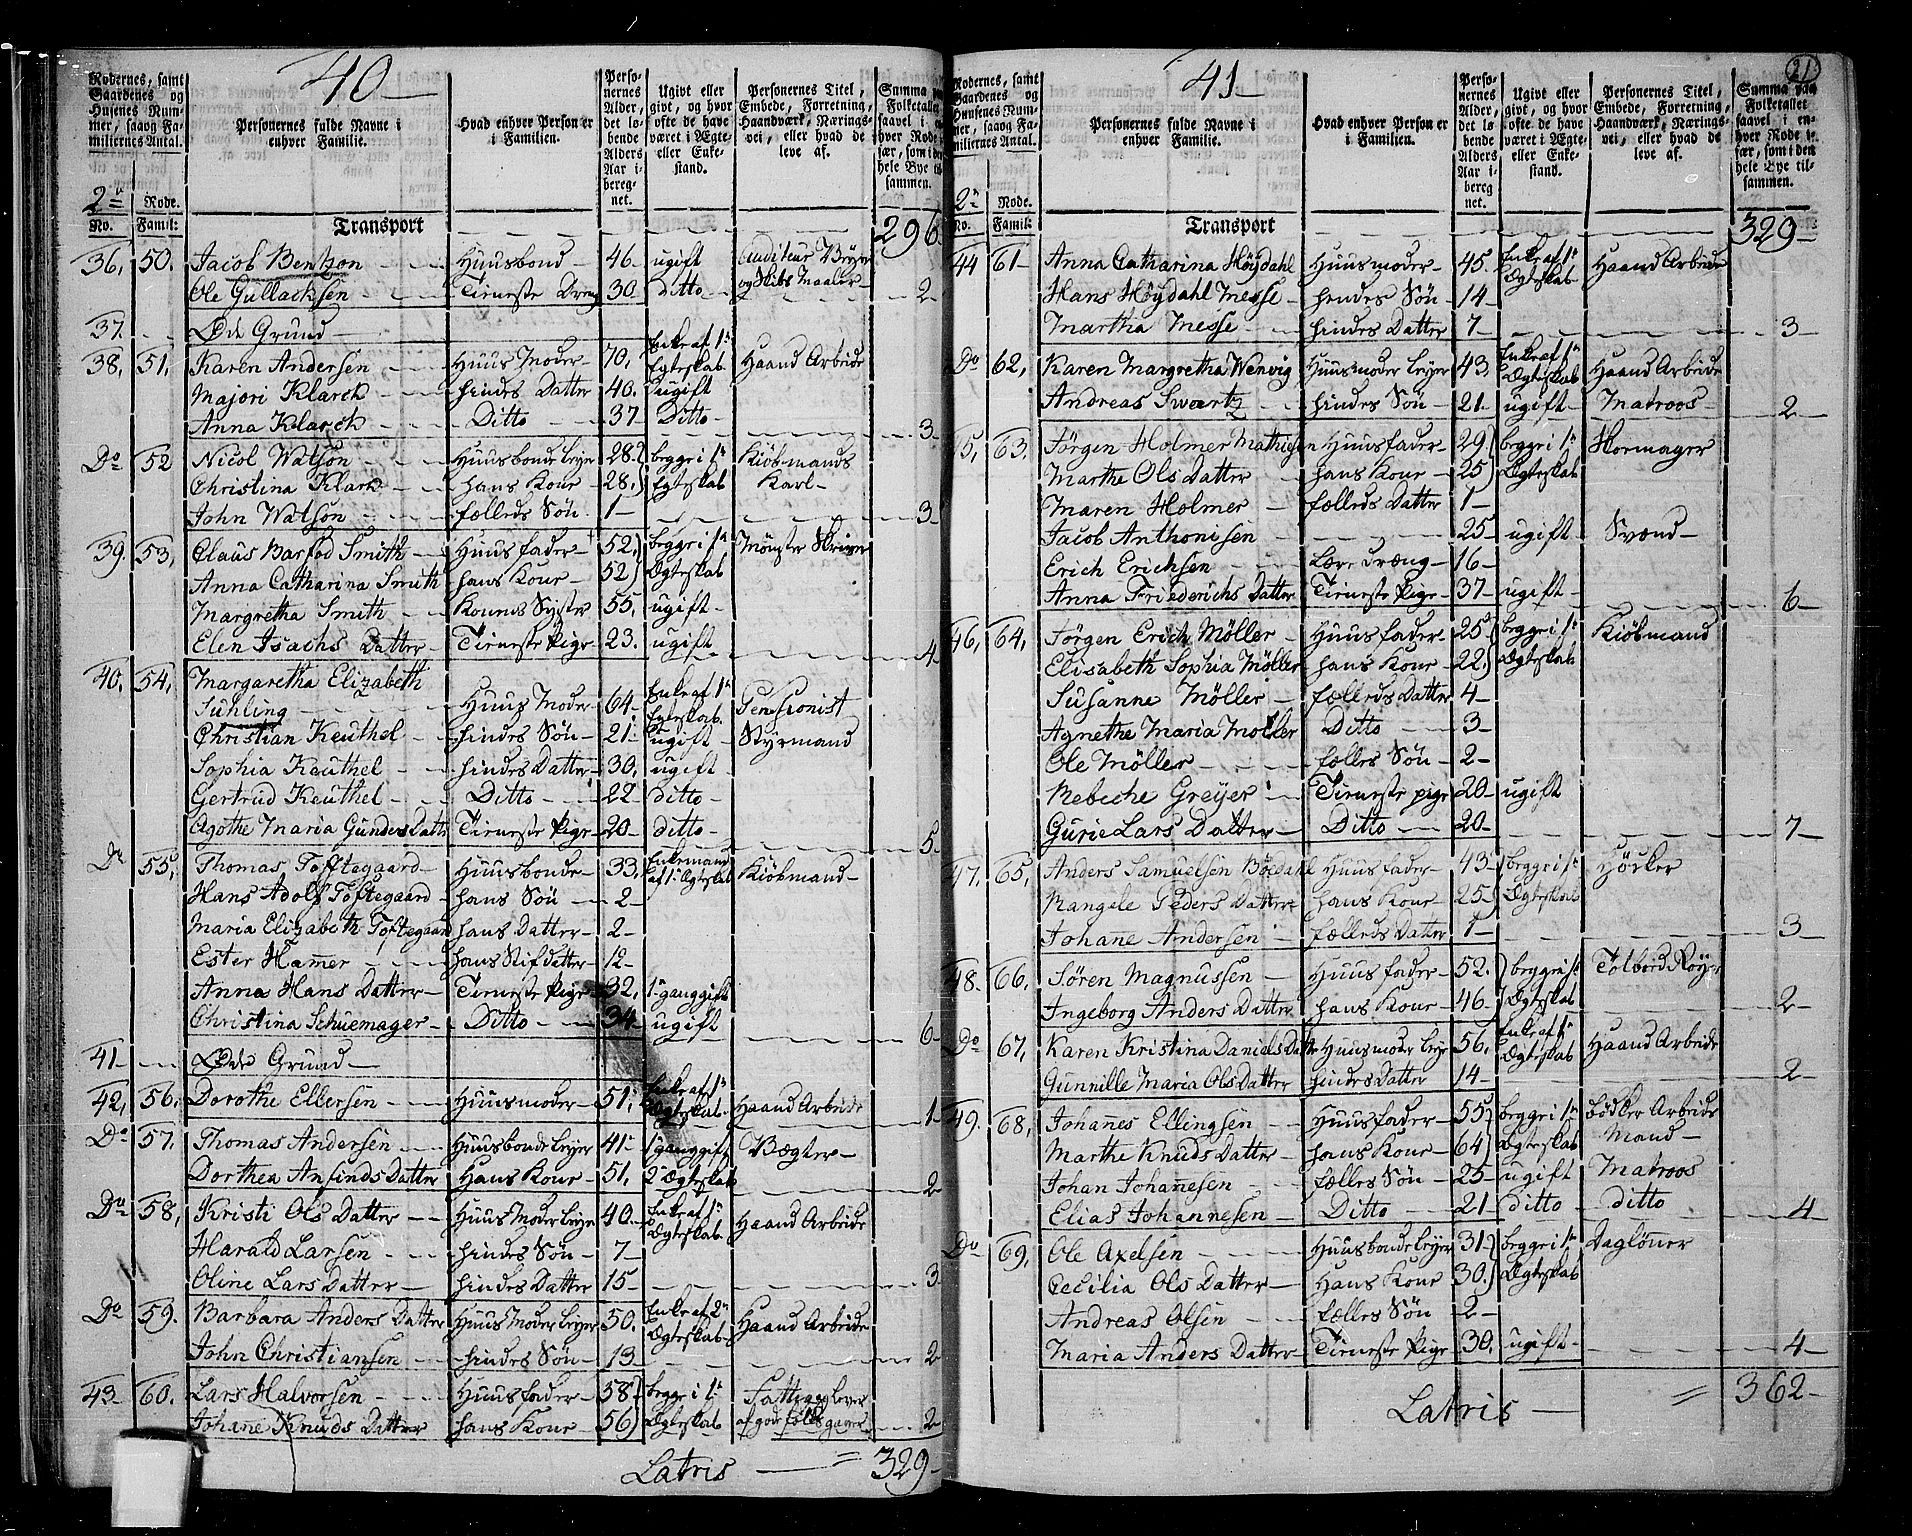 40
Rodernes, samt Gaardenes og Husenes Nummer, saavg Familiernes Antal.
Personernes fulde Navne i enhver Familie.
Hvad enhver Person er i Familien.
Personernes Alder, det løbende Alders Aar iberegnet.
Ugivt eller givt, og hvor ofte de have været i Ægte- eller Enkestand.
Personernes Titel, Embede, Forretning, Haandværk, Næringsvei, eller hvad de leve af.
2n Rode.
No. Famil:
Transport 296
36, 50. Jacob Bentzon Huusbond 46 ugift Auditeur Vryer og Skibs Maaler
Ole Gullachsen Tieneste Dreng 30 Ditto 2
37. Øde Grund
38, 51, Karen Andersen Huus Moder 70, Enke af 1n Egteskab Haand Arbeide
Majori Klarck hindes Datter 40. ugift
Anna Klarck Ditto 37 Ditto 3
Do 52 Nicol Watson Huusbonde Leyer 28 begge i 1n Egteskab Kiöbmands Karl
Christina Klark hans Kone 28,
John Watson fælleds Sön 1 3
39. 53, Claus Barfod Smith Huusfader 52, begge i 1n Ægteskab Mönster Skriver
Anna Catharina Smith hans Kone 52
Margretha Smith Konens Syster 55, ugift
Elen Isachs Datter Tieneste Pige 23. ugift 4
40. 54, Margaretha Elizabeth
Sühling Huus Moder 64 Enke af 1n Egteskab Pensionist
Christian Keuthel hindes Sön 21 ugift Styrmand
Sophia Keuthel hindes Datter 30, ugift
Gertrud Keuthel Ditto 22 ditto
Agothe Maria Gunders Datter Tieneste Pige 20 ditto 5
Do 55, Thomas Toftegaard Huusbonde 33, Enkemand af 1n Ægteskab Kiöbmand
Hans Adolf Toftegaard hans Sön 2
Maria Elizabeth Toftegaard hans Datter 2
Ester Hammer hans Stifdatter 12
Anna Hans Datter Tieneste Pige 32, 1n gang gift
Christina Schuemager Ditto 34 ugift 6
41 Øde Grund
42, 56. Dorothe Ellersen Huusmoder 51, Enke af 1n Ægteskab Haand Arbeide 1
Do 57. Thomas Andersen Huusbonde Leyer 41 1n gang gift Vægter
Dorthea Anfinds Datter Hans Kone 51, 2n Ægteskab 2
Do 58, Kristi Ols Datter Huus Moder Leyer 40 Enke af 1n Ægteskab Haand Arbeide
Harald Larsen hindes Sön 7
Oline Lars Datter hindes Datter 15 3
Do 59. Barbara Anders Datter Huus Moder Leyer 50. Enke af 2n Ægteskab Haand Arbeide
John Christiansen hindes Sön 13 2
43 60. Lars Halvorsen Huusfader 58 begge i 1n Ægteskab Fattige lever af gode folks gaver
Johanne Knuds Datter hans Kone 56 2
Latris 329
41
21
Rodernes, samt Gaardenes og Husenes Nummer, saavg Familiernes Antal.
Personernes fulde Navne i enhver Familie.
Hvad enhver Person er i Familien.
Personernes Alder, det løbende Alders Aar iberegnet.
Ugivt eller givt, og hvor ofte de have været i Ægte- eller Enkestand.
Personernes Titel, Embede, Forretning, Haandværk, Næringsvei, eller hvad de leve af.
Summa paa Folketallet saavel i enhver Rode især, som i den hele Bye tilsammen.
2n Rode.
No. Famil:
Transport 329
44 61 Anna Catharina Höydahl Huusmoder 45 Enke af 1n Ægteskab Haand Arbeide
Hans Höydahl Messe hendes Sön 14
Martha Messe hindes Datter 7 3
Do 62, Karen Margretha Wenvig Huusmoder Leyer 43, Enke af 1n Ægteskab Haand Arbeide
Andreas Swartz hindes Sön 21 ugift Matroos 2
45, 63. Jörgen Holmer Mathigen Huusfader 29 begge i 1n Ægteskab Skomager
Marthe Ols Datter hans Kone 25
Maren Holmer fælleds Datter 1
Jacob Anthonisen 25 ugift Svend
Erich Erichsen Lære Dreng 16
Anna Friederichs Datter Tieneste Pige 37 ugift 6
46, 64, Jörgen Erich Möller Huusfader 25 begge i 1n Ægteskab Kiöbmand
Elisabeth Sophia Möller hans Kone 22
Susanne Möller fælleds Datter 4
Agnethe Maria Möller Ditto 3
Ole Möller fælles Sön 2
Rebeche Greyer Tieneste pige 20 ugift
Gurie Lars Datter Ditto 20 7
47. 65, Anders Samuelsen Böedahl Huusfader 43 begge i 1n Ægteskab Höcker
Mangele Peders Datter hans Kone 25
Johanne Andersen fælleds Datter 1 3
48. 66, Sören Magnussen Huusfader 52. begge i 1n Ægteskab Tolbod Röyer
Ingeborg Anders Datter hans Kone 46 2
Do 67, Karen Kristina Daniels Datter Huusmoder Leyer 56, Enke af 1n Ægteskab Haand Arbeide
Gunnille Maria Ols Datter hindes Datter 14 2
49. 68, Johannes Ellingsen Huusfader 55 begge i 1n Ægteskab bödker Arbeids Mand
Marthe Knuds Datter hans Kone 64
Johan Johannesen fælles Sön 25 ugift Matroos
Elias Johannesen Ditto 21 ditto ditto 4
Do 69, Ole Axelsen Huusbonde Leyer 31 begge i 1n Ægteskab Daglönner
Cecilia Ols Datter Hans Kone 30.
Andreas Olsen fælles Sön 2
Maria Anders Datter Tieneste Pige 30. ugift 4
Latris 362